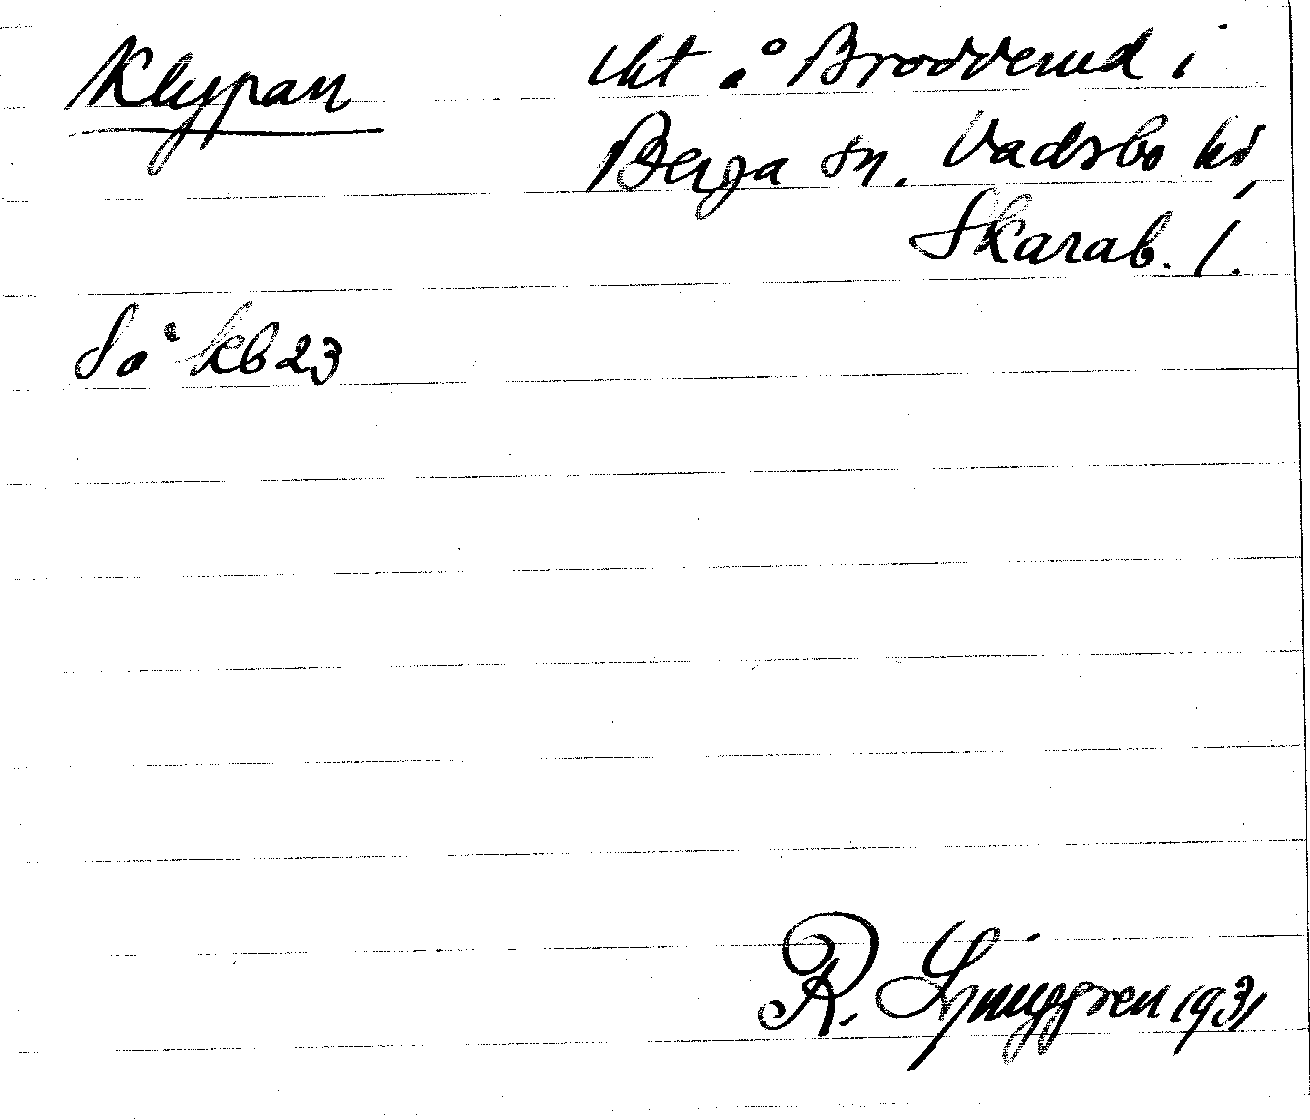 Klypan
tht å Brodderud i
Berga sn. Vadsbo hd,
Skarab. l.
Så kb 23
R. Ljunggren 1931